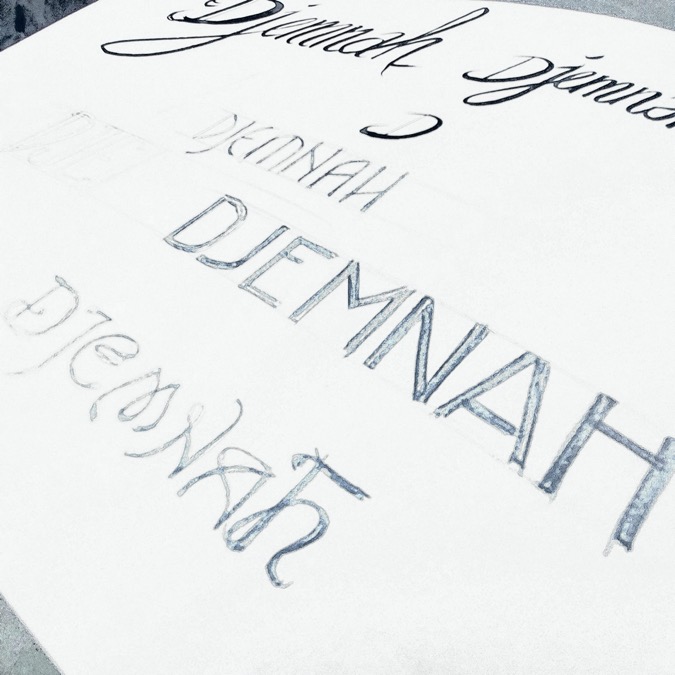 Djemnah Djemnah
D
DJEMNAH
DJEMNAH
DJEMNAH